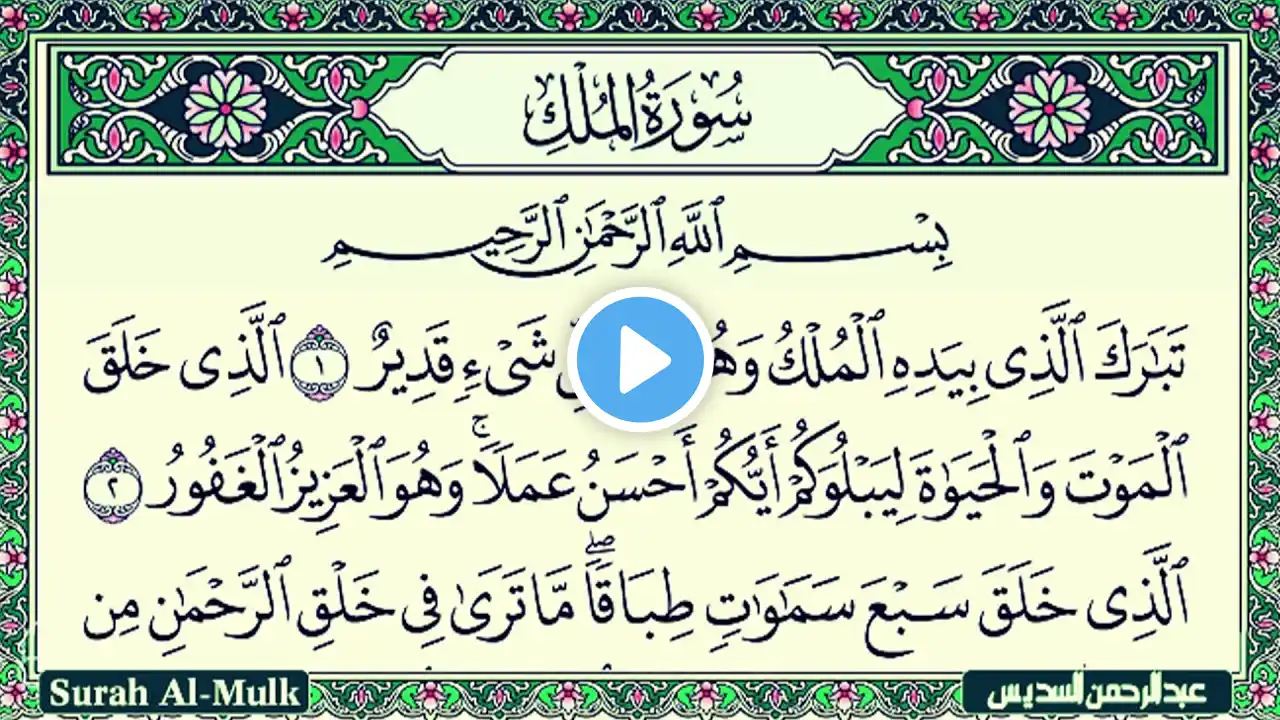 سُورَةُ الْمُلْكِ
بِسْمِ ٱللَّهِ ٱلرَّحْمَٰنِ ٱلرَّحِيمِ
تَبَٰرَكَ ٱلَّذِى بِيَدِهِ ٱلْمُلْكُ شَىْءٍ قَدِيرٌ ١ ٱلَّذِى خَلَقَ
ٱلْمَوْتَ وَٱلْحَيَوٰةَ لِيَبْلُوَكُمْ أَيُّكُمْ أَحْسَنُ عَمَلًا ۚ وَهُوَ ٱلْعَزِيزُ ٱلْغَفُورُ ٢
ٱلَّذِى خَلَقَ سَبْعَ سَمَٰوَٰتٍ طِبَاقًا ۖ مَّا تَرَىٰ فِى خَلْقِ ٱلرَّحْمَٰنِ مِن
Surah Al-Mulk
عبدالرحمن السديس